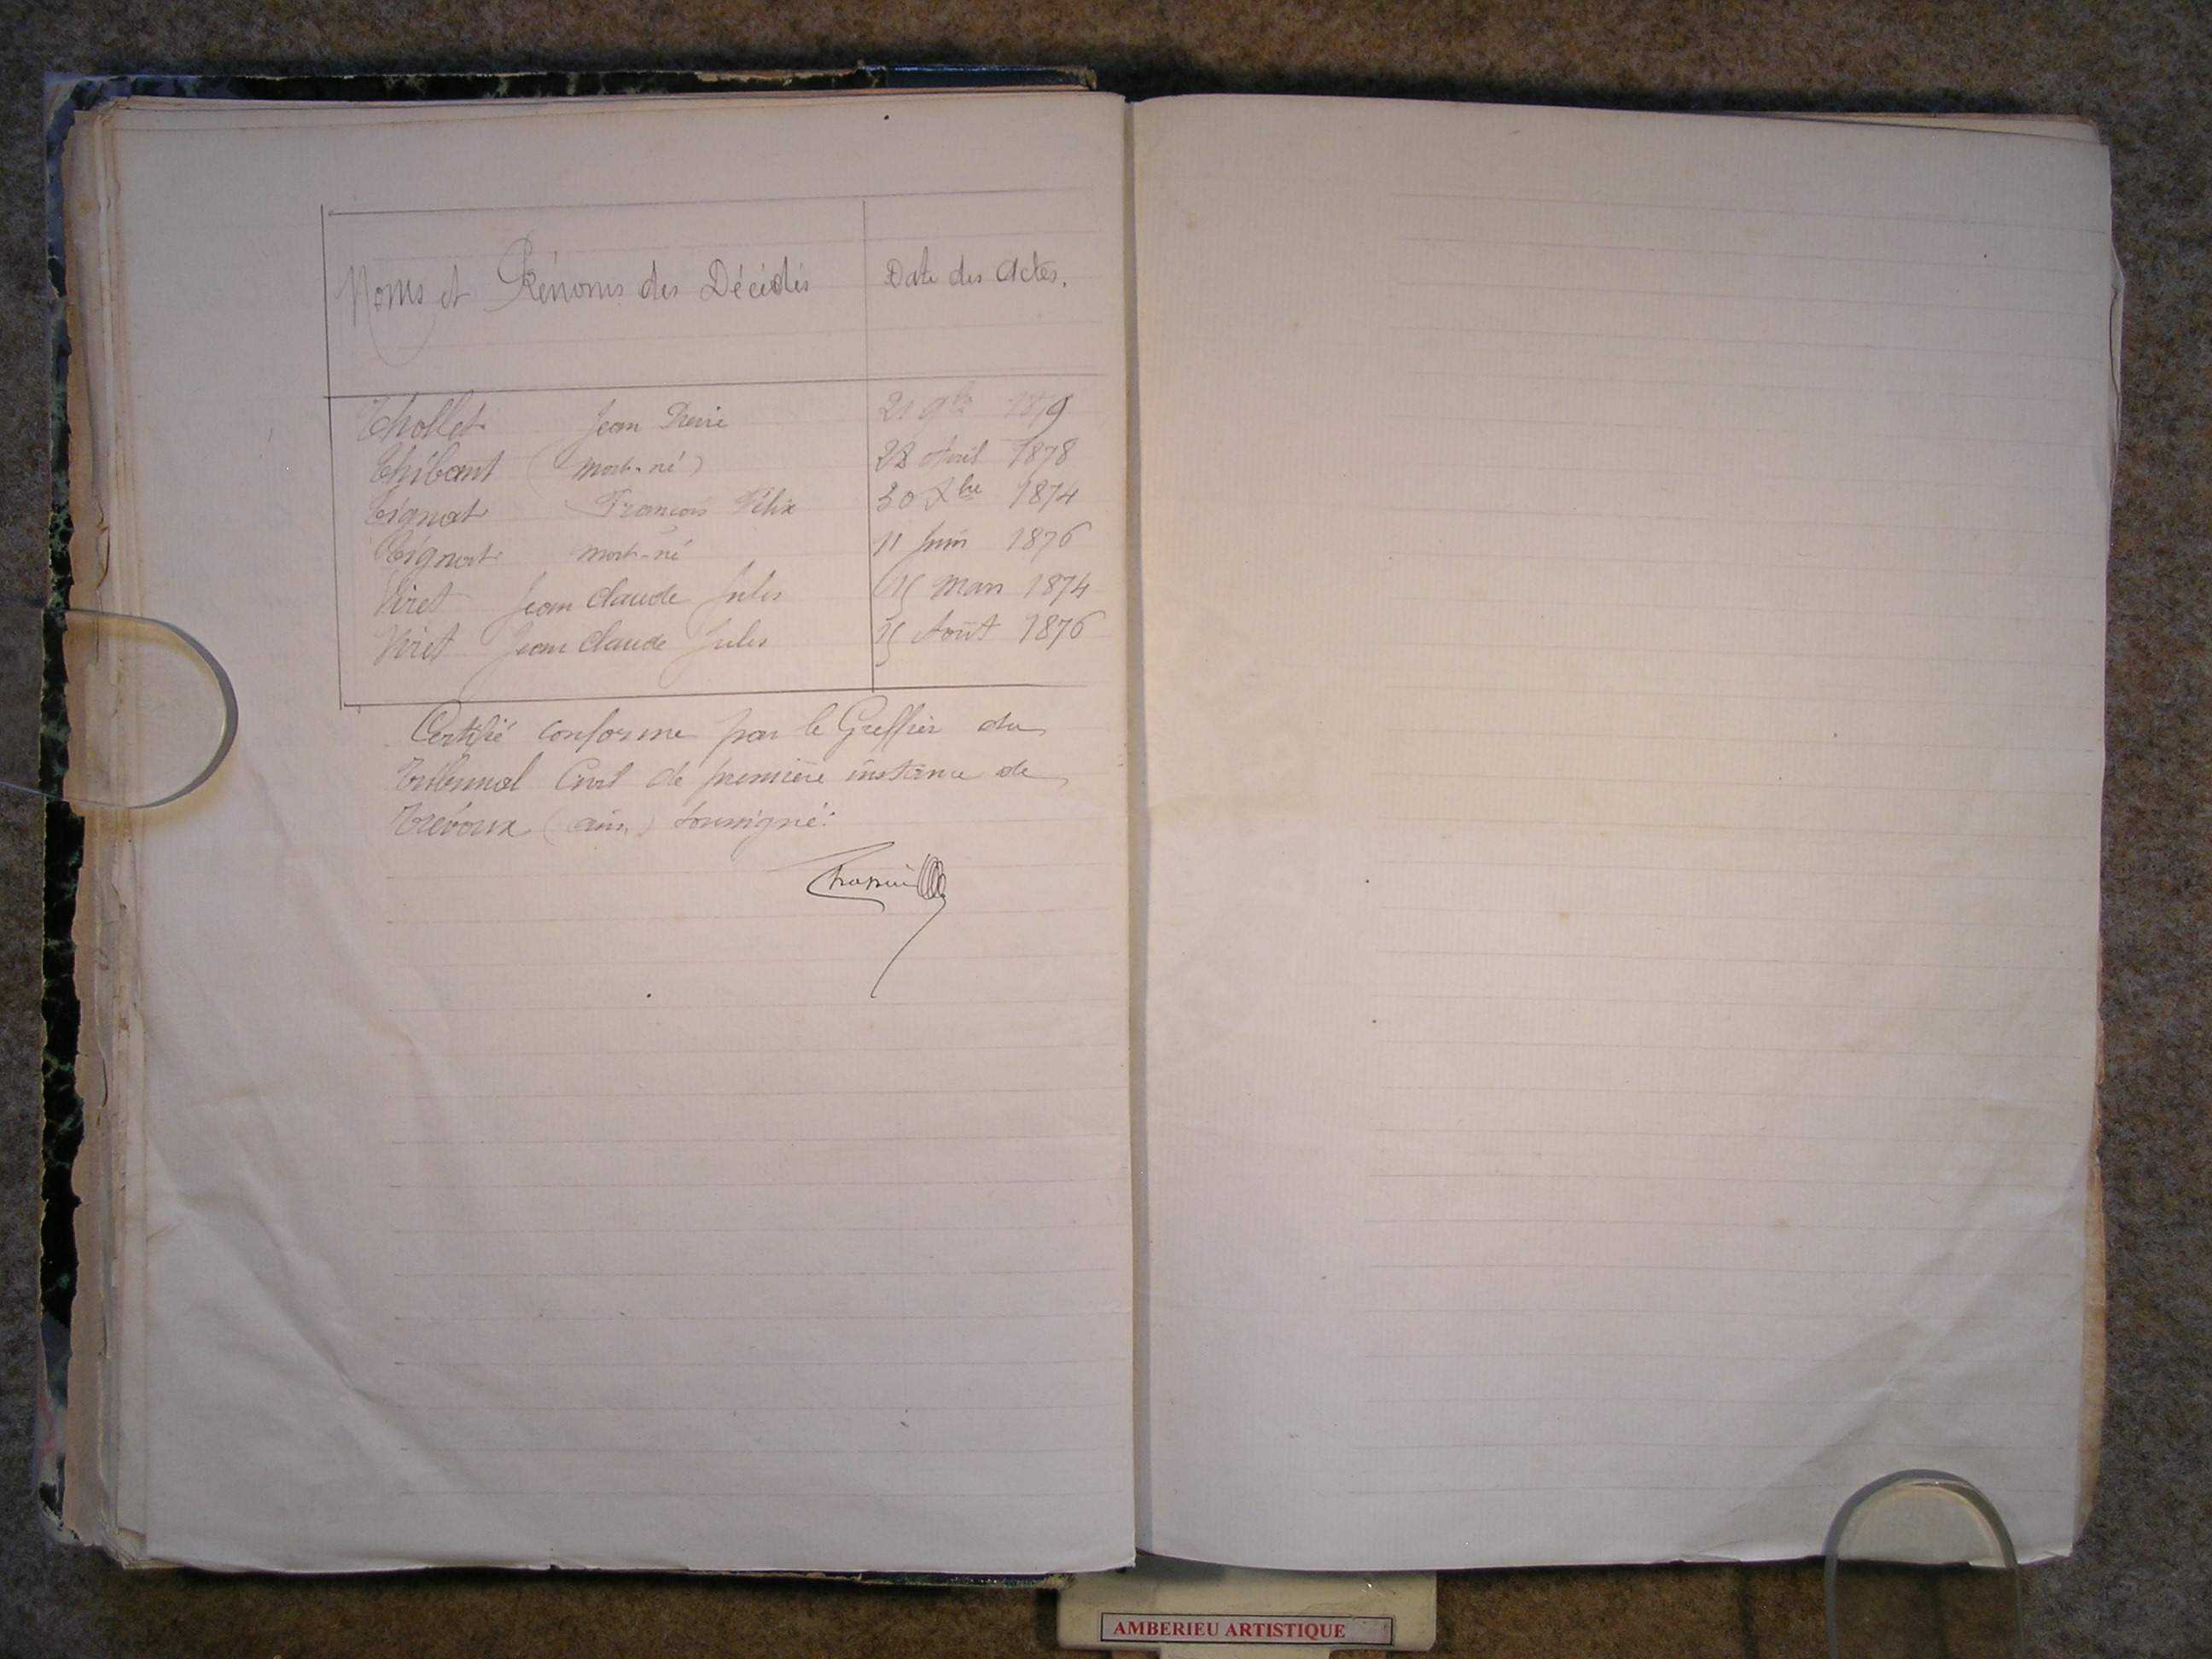 Noms et Prénoms des Décédés Date des Actes.
Thollet Jean Pierre 21 9bre 1879
Thibaut (mort-né) 28 Avril 1878
Tignat François Félix 30 Xbre 1874
Tignat mort-né 11 Juin 1876
Viret Jean Claude Jules 15 Mars 1874
Viret Jean Claude Jules 15 Août 1876
Certifié conforme par le Greffier du
Tribunal Civil de première instance de
Trévoux (ain) soussigné.
AMBERIEU ARTISTIQUE